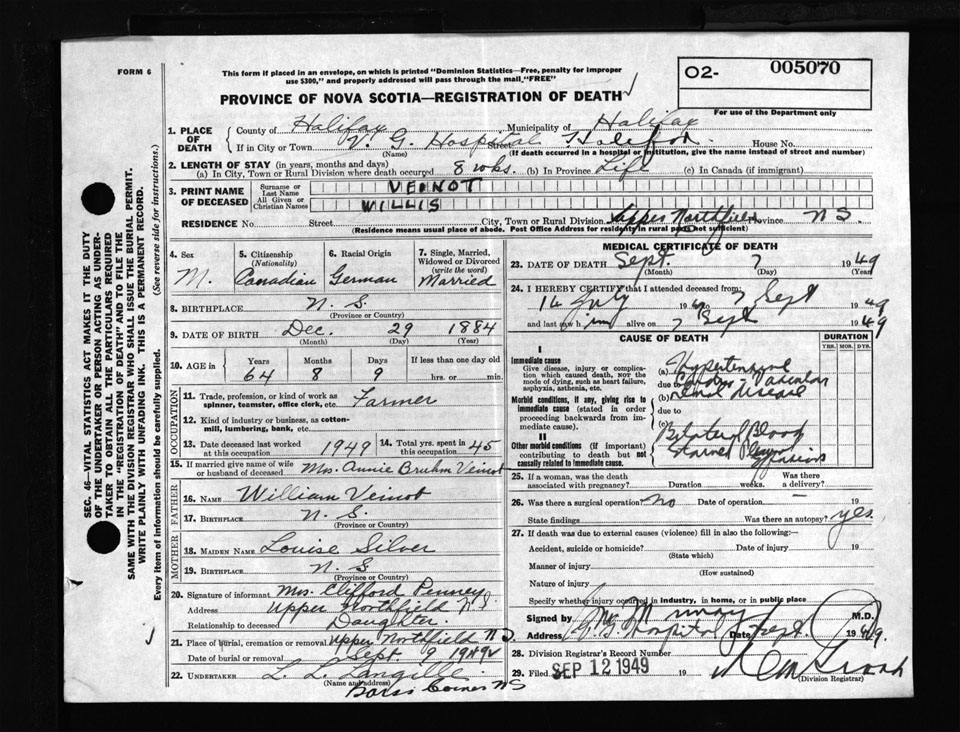 FORM 6
This form if placed in an envelope, on which is printed "Dominion Statistics—Free, penalty for improper
use $300," and properly addressed will pass through the mail "FREE"
O2- 005070
For use of the Department only
PROVINCE OF NOVA SCOTIA—REGISTRATION OF DEATH
1. PLACE OF DEATH
County of Halifax Municipality of Halifax
If in City or Town V. G. Hospital Street Halifax House No.
(Name) (If death occurred in a hospital or institution, give the name instead of street and number)
2. LENGTH OF STAY (in years, months and days)
(a) In City, Town or Rural Division where death occured 8 wks. (b) In Province Life (c) In Canada (if immigrant)
3. PRINT NAME OF DECEASED
Surname or Last Name VEINOT
All Given or Christian Names WILLIS
RESIDENCE No. Street City, Town or Rural Division Upper Northfield Province N S
(Residence means usual place of abode. Post Office Address for residents in rural parts not sufficient)
SEC. 46—VITAL STATISTICS ACT MAKES IT THE DUTY
OF THE UNDERTAKER OR PERSON ACTING AS UNDER-
TAKER TO OBTAIN ALL THE PARTICULARS REQUIRED
IN THE "REGISTRATION OF DEATH" AND TO FILE THE
SAME WITH THE DIVISION REGISTRAR WHO SHALL ISSUE THE BURIAL PERMIT.
WRITE PLAINLY WITH UNFADING INK. THIS IS A PERMANENT RECORD.
Every item of information should be carefully supplied. (See reverse side for instructions.)
4. Sex M.
5. Citizenship (Nationality) Canadian
6. Racial Origin German
7. Single, Married, Widowed or Divorced (write the word) Married
8. BIRTHPLACE N. S.
(Province or Country)
9. DATE OF BIRTH Dec. 29 1884
(Month) (Day) (Year)
10. AGE in Years Months Days If less than one day old
64 8 9 hrs. or min.
OCCUPATION
11. Trade, profession, or kind of work as
spinner, teamster, office clerk, etc. Farmer
12. Kind of industry or business, as cotton-
mill, lumbering, bank, etc.
13. Date deceased last worked at this occupation 1949 14. Total yrs. spent in this occupation 45
15. If married give name of wife or husband of deceased Mrs. Annie Bruhm Veinot
FATHER
16. NAME William Veinot
17. BIRTHPLACE N. S.
(Province or Country)
MOTHER
18. MAIDEN NAME Louise Silver
19. BIRTHPLACE N. S
(Province or Country)
20. Signature of informant Mrs. Clifford Penney
Address Upper Northfield N. S.
Relationship to deceased Daughter.
21. Place of burial, cremation or removal Upper Northfield N S.
Date of burial or removal Sept. 9 1949
22. UNDERTAKER L. L. Langille
(Name and address)
Corner NS
MEDICAL CERTIFICATE OF DEATH
23. DATE OF DEATH Sept. 7 1949
(Month) (Day) (Year)
24. I HEREBY CERTIFY that I attended deceased from:
14 July 1949 7 Sept 1949
and last saw him alive on 7 Sept 1949
CAUSE OF DEATH DURATION
YRS. MOS. DYS.
I
Immediate cause
Give disease, injury or complica-
tion which caused death, NOT the
mode of dying, such as heart failure,
asphyxia, asthenia, etc.
(a) Hypertensive
due to Cardio Vascular
Morbid conditions, if any, giving rise to
immediate cause (stated in order
proceeding backwards from im-
mediate cause).
(b) renal disease
due to
(c)
II
Other morbid conditions (if important)
contributing to death but not
causally related to immediate cause.
Bilateral Blood
Stained Pleural
Effusions
25. If a woman, was the death associated with pregnancy? Duration weeks. Was there a delivery?
26. Was there a surgical operation? no Date of operation — 19
State findings Was there an autopsy? yes
27. If death was due to external causes (violence) fill in also the following:—
Accident, suicide or homicide? Date of injury 19
(State which)
Manner of injury
(How sustained)
Nature of injury
Specify whether injury occurred in industry, in home, or in public place
Signed by M.D.
Address V. G. Hospital Date Sept. 1949.
28. Division Registrar's Record Number
29. Filed SEP 12 1949 19
(Division Registrar)